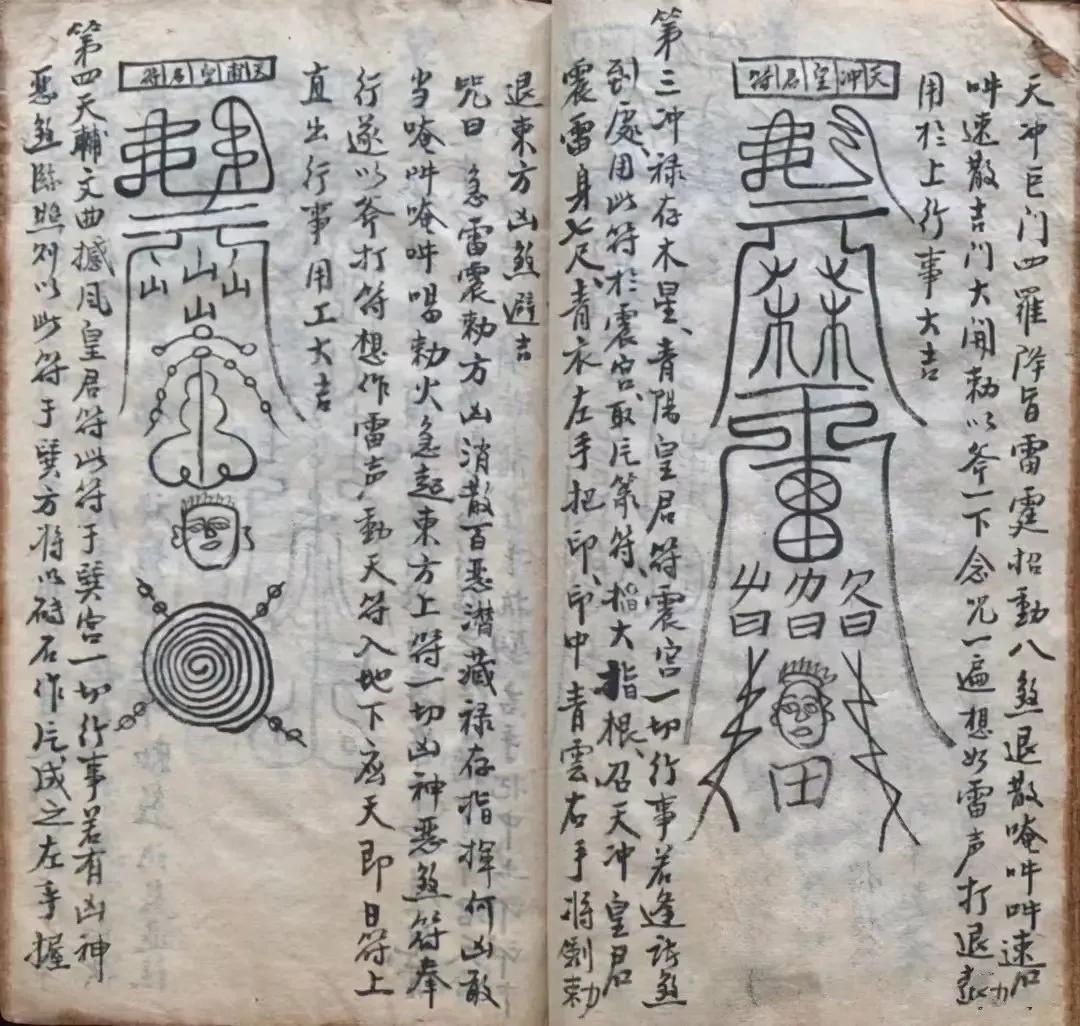 天冲巨门四羅降旨雷霆招動八煞退散唵吽吽速
吽速散吉门大開勅以斧一下念咒一遍想如雷声打退
用於上行事大吉
天冲皇君符
第三冲禄存木星青陽皇君符震宫一切行事若逢諸煞
到處用此符於震宫取瓦篆符指大指根召天冲皇君
震雷身七尺青衣左手把印印中青雲右手將劍勅
退東方凶煞避吉
咒曰急雷震勅方凶消散百惡潜藏禄存指揮何凶敢
当唵吽唵吽唱勅火急起東方上符一切凶神惡煞符奉
行遂以斧打符想作雷声動天符入地下应天即日符上
直出行事用工大吉
天輔皇君符
山山山山
第四天輔文曲撼風皇君符此符于巽宫一切行事若有凶神
惡煞臨照列以此符于巽方將以磚石作瓦成之左手握